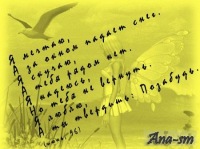 Я мечтаю,
А за окном падает снег.
Я скучаю,
А тебя рядом нет.
Я надеюсь
Но тебя не вернуть.
Я люблю,
А ты твердишь: Позабудь.
Ana-sm